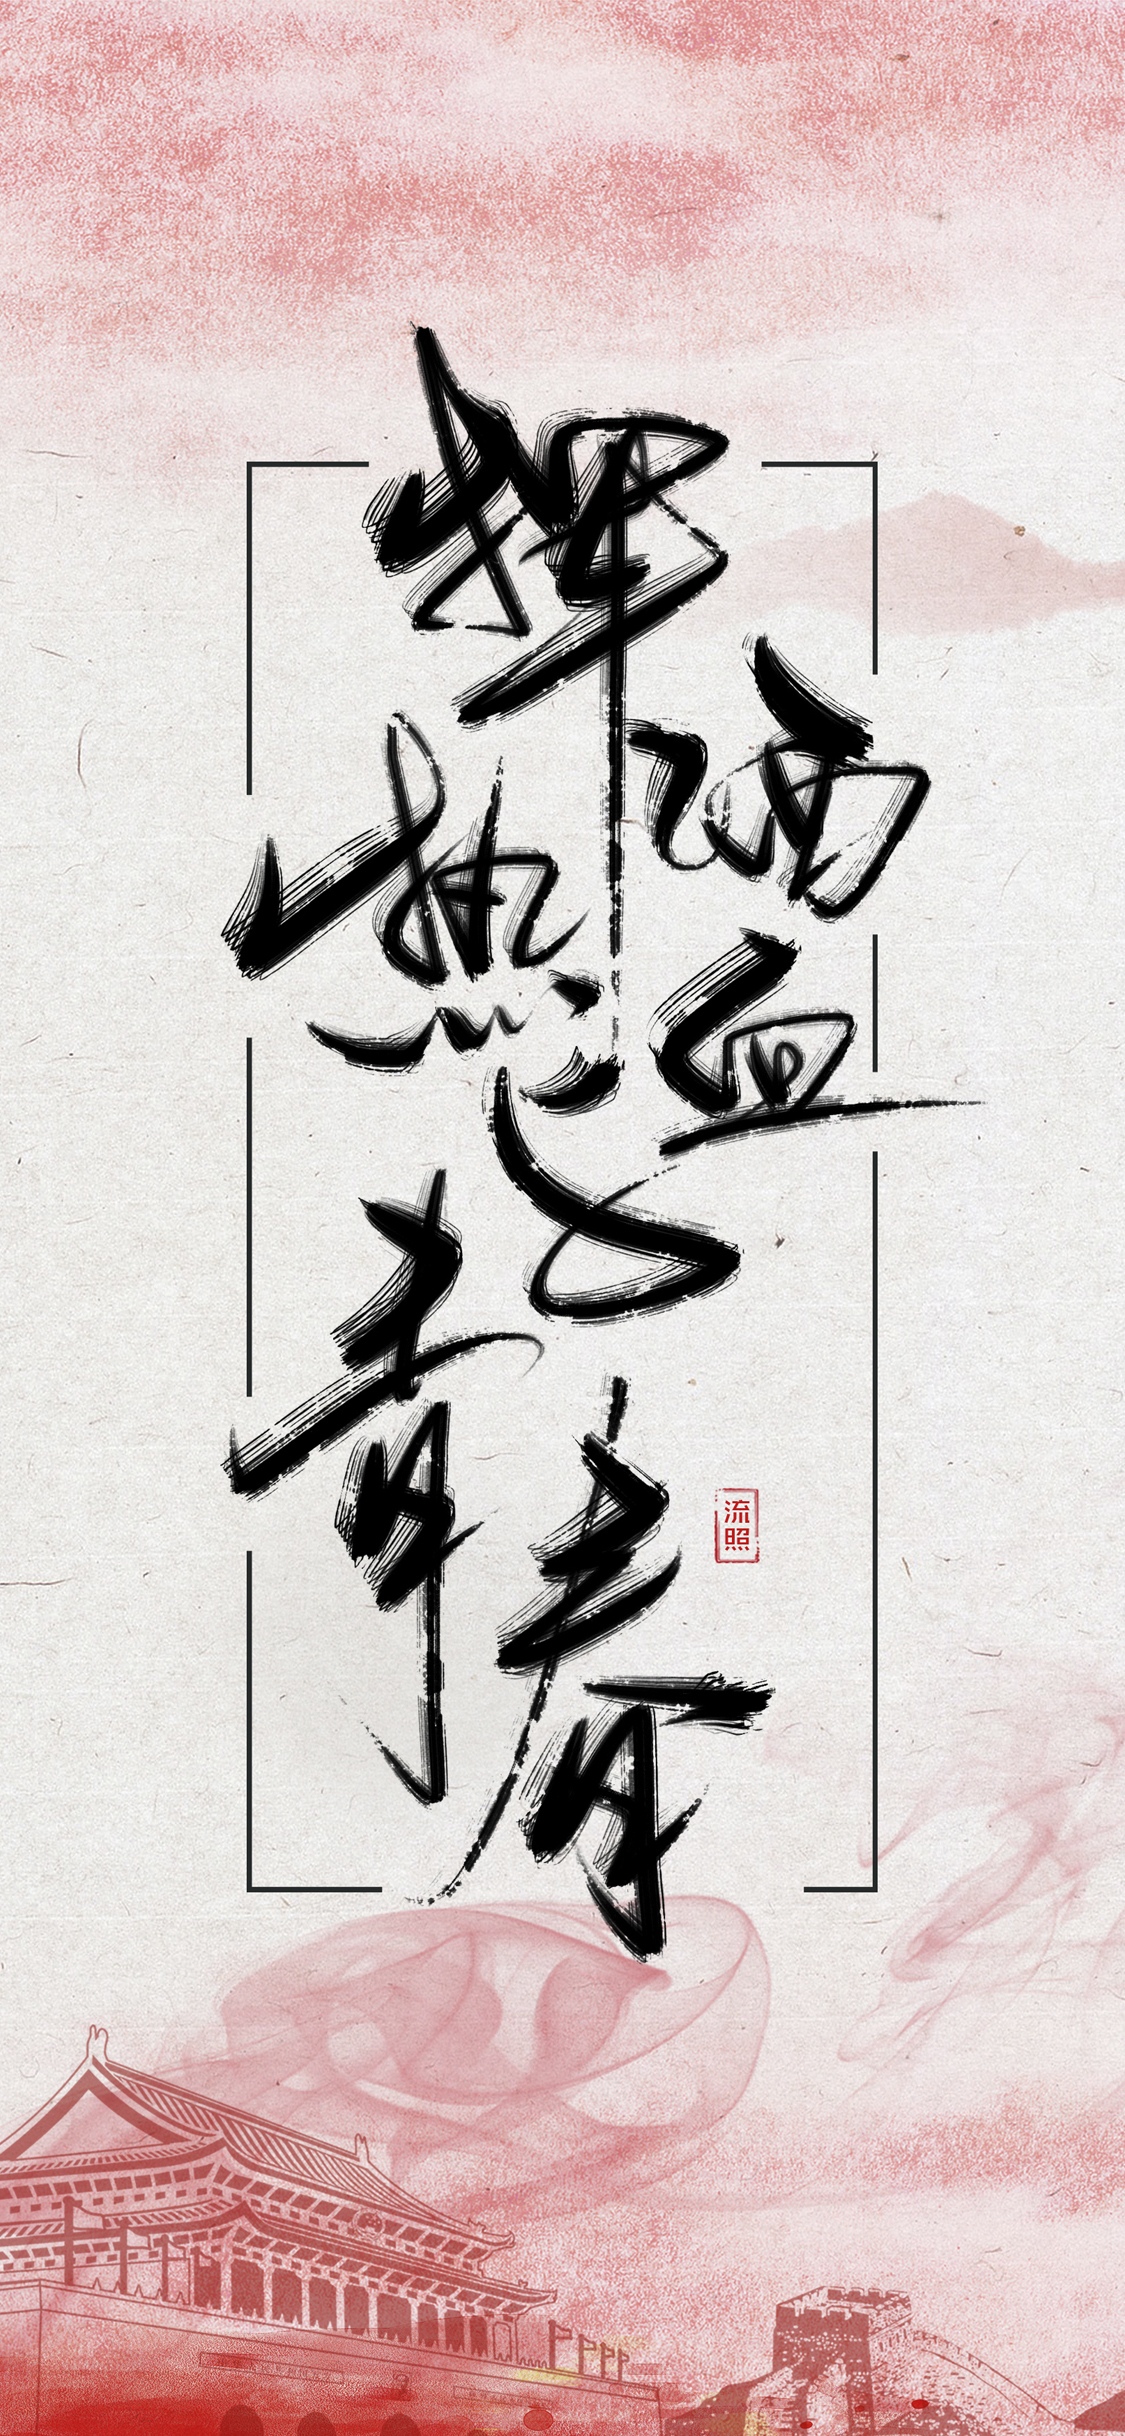 挥洒
热血
之
青春
流照